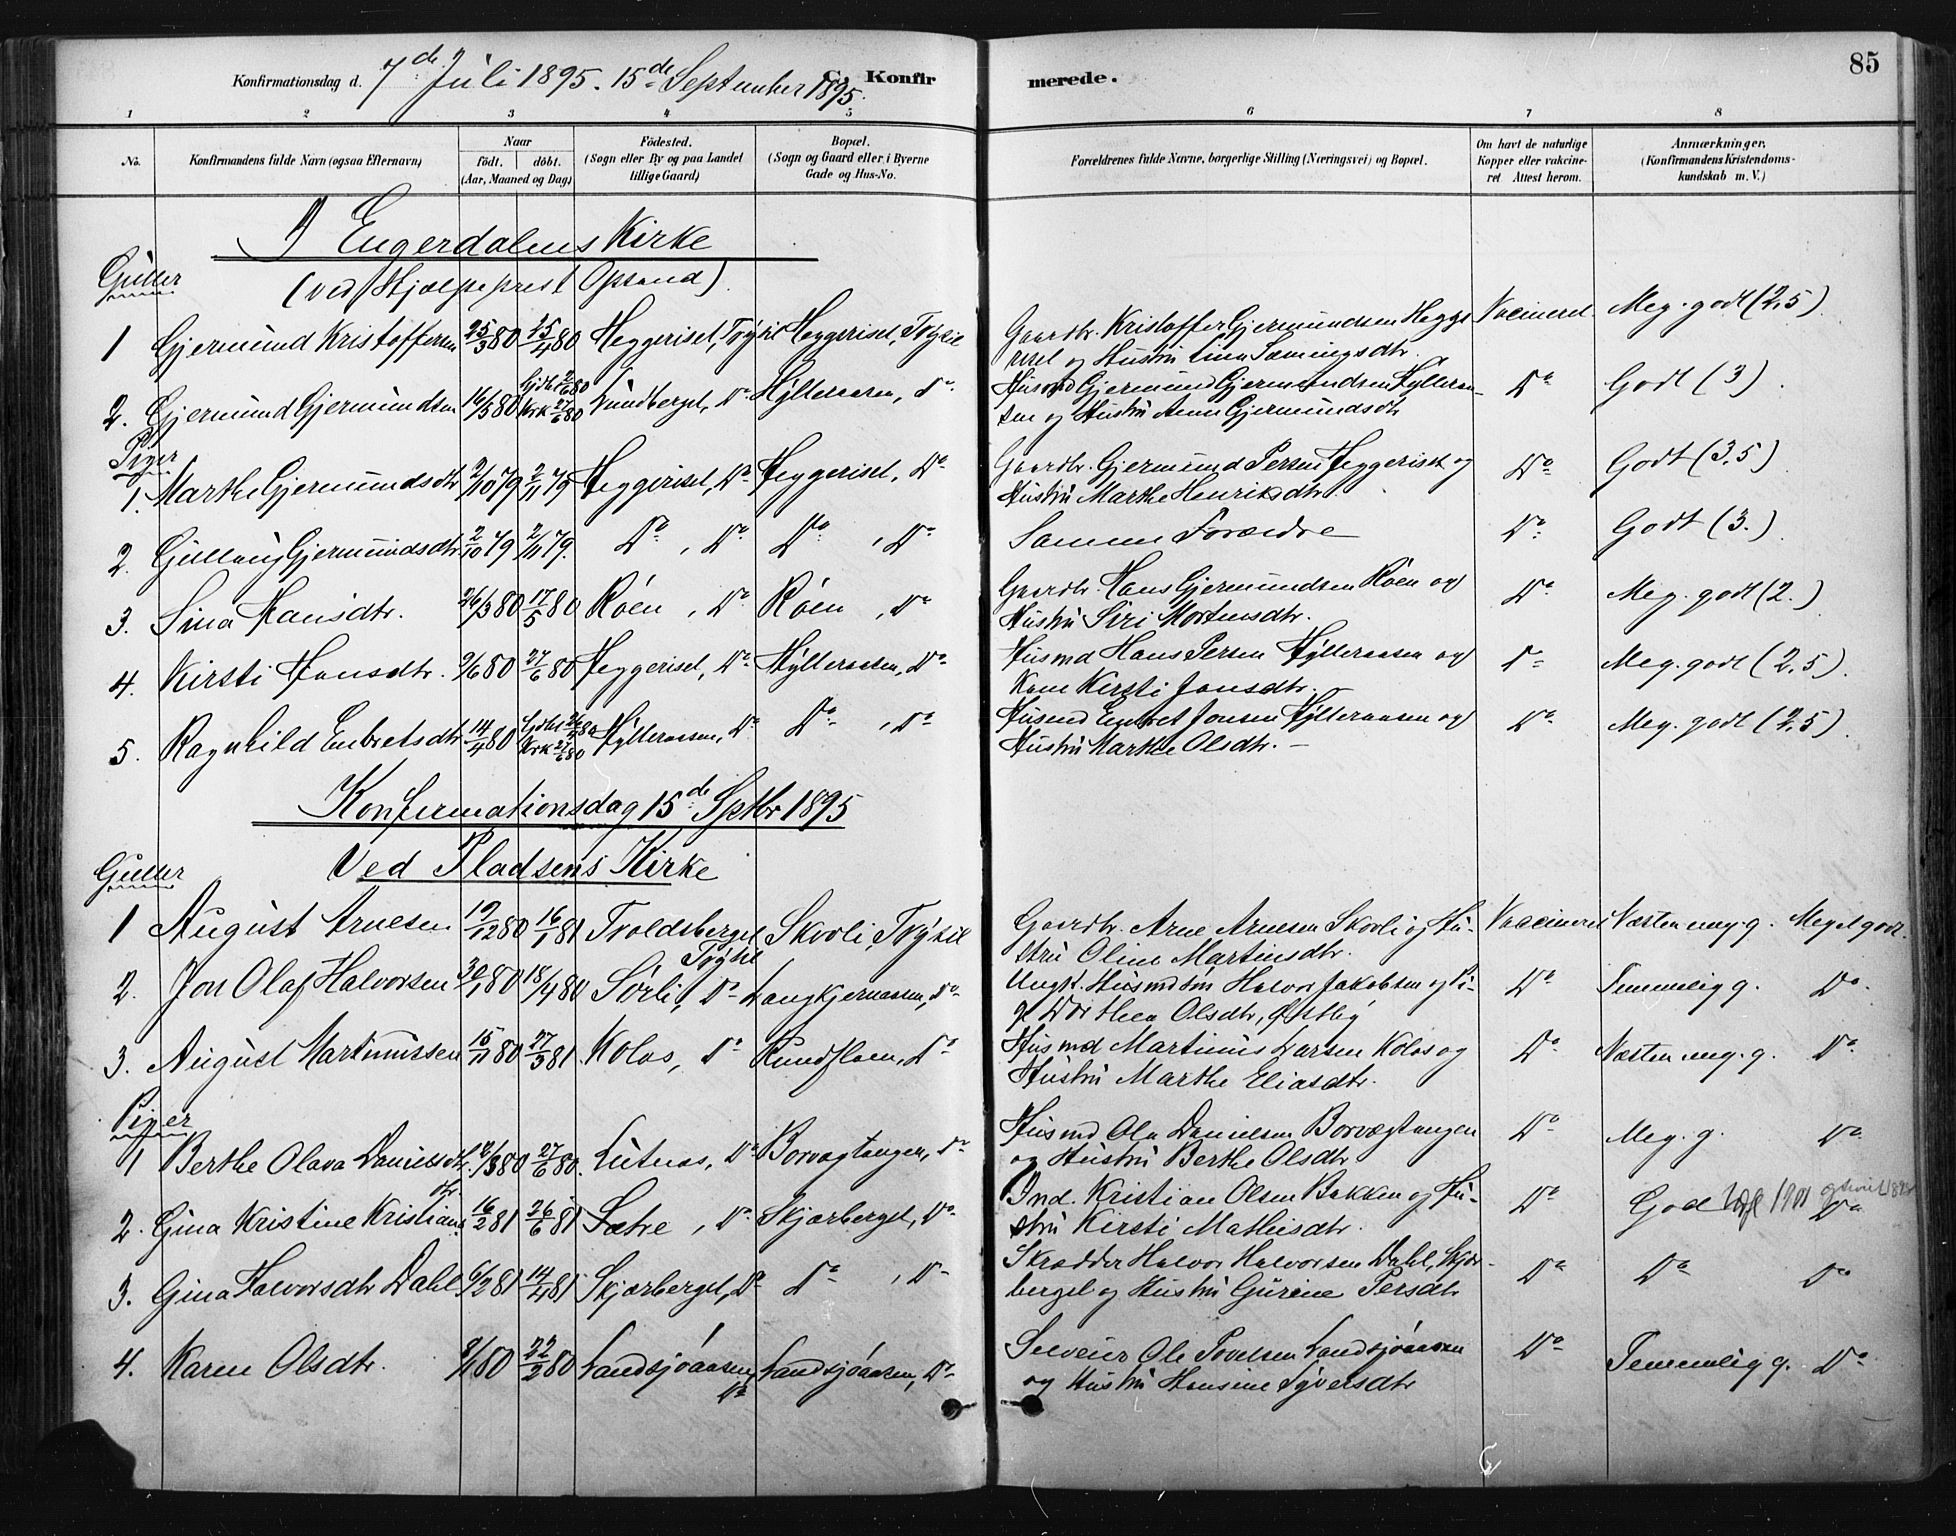 Konfirmationsdag d. 7de Juli 1895. 15de September 1895. C. Konfirmerede. 85
1 2 3 4 5 6 7 8
No. Konfirmandens fulde Navn (ogsaa Efternavn) Naar født. døbt. (Aar, Maaned og Dag) Fødested. (Sogn eller By og paa Landet tillige Gaard) Bopæl. (Sogn og Gaard eller i Byerne Gade og Hus-No. Forældrenes fulde Navne, borgerlige Stilling (Næringsvei) og Bopæl. Om havt de naturlige Kopper eller vakcineret Attest herom. Anmærkninger. (Konfirmandens Kristendomskundskab m. V.)
I Engerdalens Kirke
(ved Hjælpeprest Opsand)
Gutter
1 Gjermund Kristoffersen 25/3 80 25/4 80 Heggeriset, Trysil Heggeriset, Trysil Gaardbr. Kristoffer Gjermundsen Hegge Vacineret Meg. godt (2,5)
riset og Hustru Lina Sæmingsdtr.
2. Gjermund Gjermundsen 16/5 80 Gjdbt 2/6 80 Krk 27/6 80 Lundberget, Do Hylleraasen, Do Husmd Gjermund Gjermundsen Hylleraa- Do Godt (3)
sen og Hustru Anne Gjermundsdtr
Piger
1. Marthe Gjermundsdtr 2/10 79 2/11 79 Heggeriset, Do Heggeriset, Do Gaardbr. Gjermund Persen Heggeriset og Do Godt (3,5)
Hustru Marthe Henriksdtr.
2. Gullaug Gjermundsdtr 2/10 79 2/11 79. Do, Do Do, Do Samme Forældre Do Godt (3.)
3. Sina Hansdtr. 26/3 80 17/5 80 Röen, Do Röen, Do Gaardbr. Hans Gjermundsen Röen og Do Meg. godt (2.)
Hustru Siri Mortensdtr.
4. Kirsti Hansdtr. 9/6 80 27/6 80 Heggeriset, Do Hylleraasen, Do Husmd Hans Persen Hylleraasen og Do Meg. godt (2,5)
Kone Kirsti Jonsdtr.
5. Ragnhild Embretsdtr 14/4 80 Krk 27/6 80 Hylleraasen, Do Do, Do Husmd Embret Jonsen Hylleraasen og Do Meg. godt (2,5)
Hustru Marthe Olsdtr. –
Konfirmationsdag 15de Septbr 1895
Ved Pladsens Kirke
Gutter
1 August Arnesen 19/12 80 16/1 81 Troldsberget Trysil Skovli, Trysil Gaardbr. Arne Arnesen Skovli og Hu- Vaccineret Næsten meg. g. Meget godt.
stru Oline Martinsdtr.
2. Jon Olaf Halvorsen 30/1 80 18/4 80 Sörli, Do Langkjernaasen, Do Ungk. Husmdsön Halvor Jakobsen og Pi- Do Temmelig g. Do
ge Dorthea Olsdtr, Østby
3. August Martinussen 15/11 80 27/3 81 Kolos, Do Rundfloen, Do Husmd Martinus Larsen Kolos og Do Næsten meg. g. Do
Hustru Marthe Eliasdtr.
Piger
1 Berthe Olava Danielsdtr. 27/6 80. Lutnæs, Do Borvægtangen, Do Husmd Ola Danielsen Borvægtangen Do Meg. g. Do
og Hustru Berthe Olsdtr
2. Gina Kristine Kristiansdtr. 16/2 81 26/6 81 Sætre, Do Skjærberget, Do Ind. Kristian Olsen Bakken og Hu- Do God 1901 Do
stru Kirsti Mathisdtr.
3. Gina Halvorsdtr Dahl 6/2 81 14/4 81 Skjærberget, Do Do, Do Skrædder Halvor Halvorsen Dahl, Skjær- Do Do Do
berget og Hustru Gurine Persdtr
4. Karen Olsdtr. 9/1 80 22/2 80 Landsjöaasen, Do Landsjöaasen, Do Selveier Ole Povelsen Landsjöaasen Do Temmelig g. Do
og Hustru Hansene Syversdtr